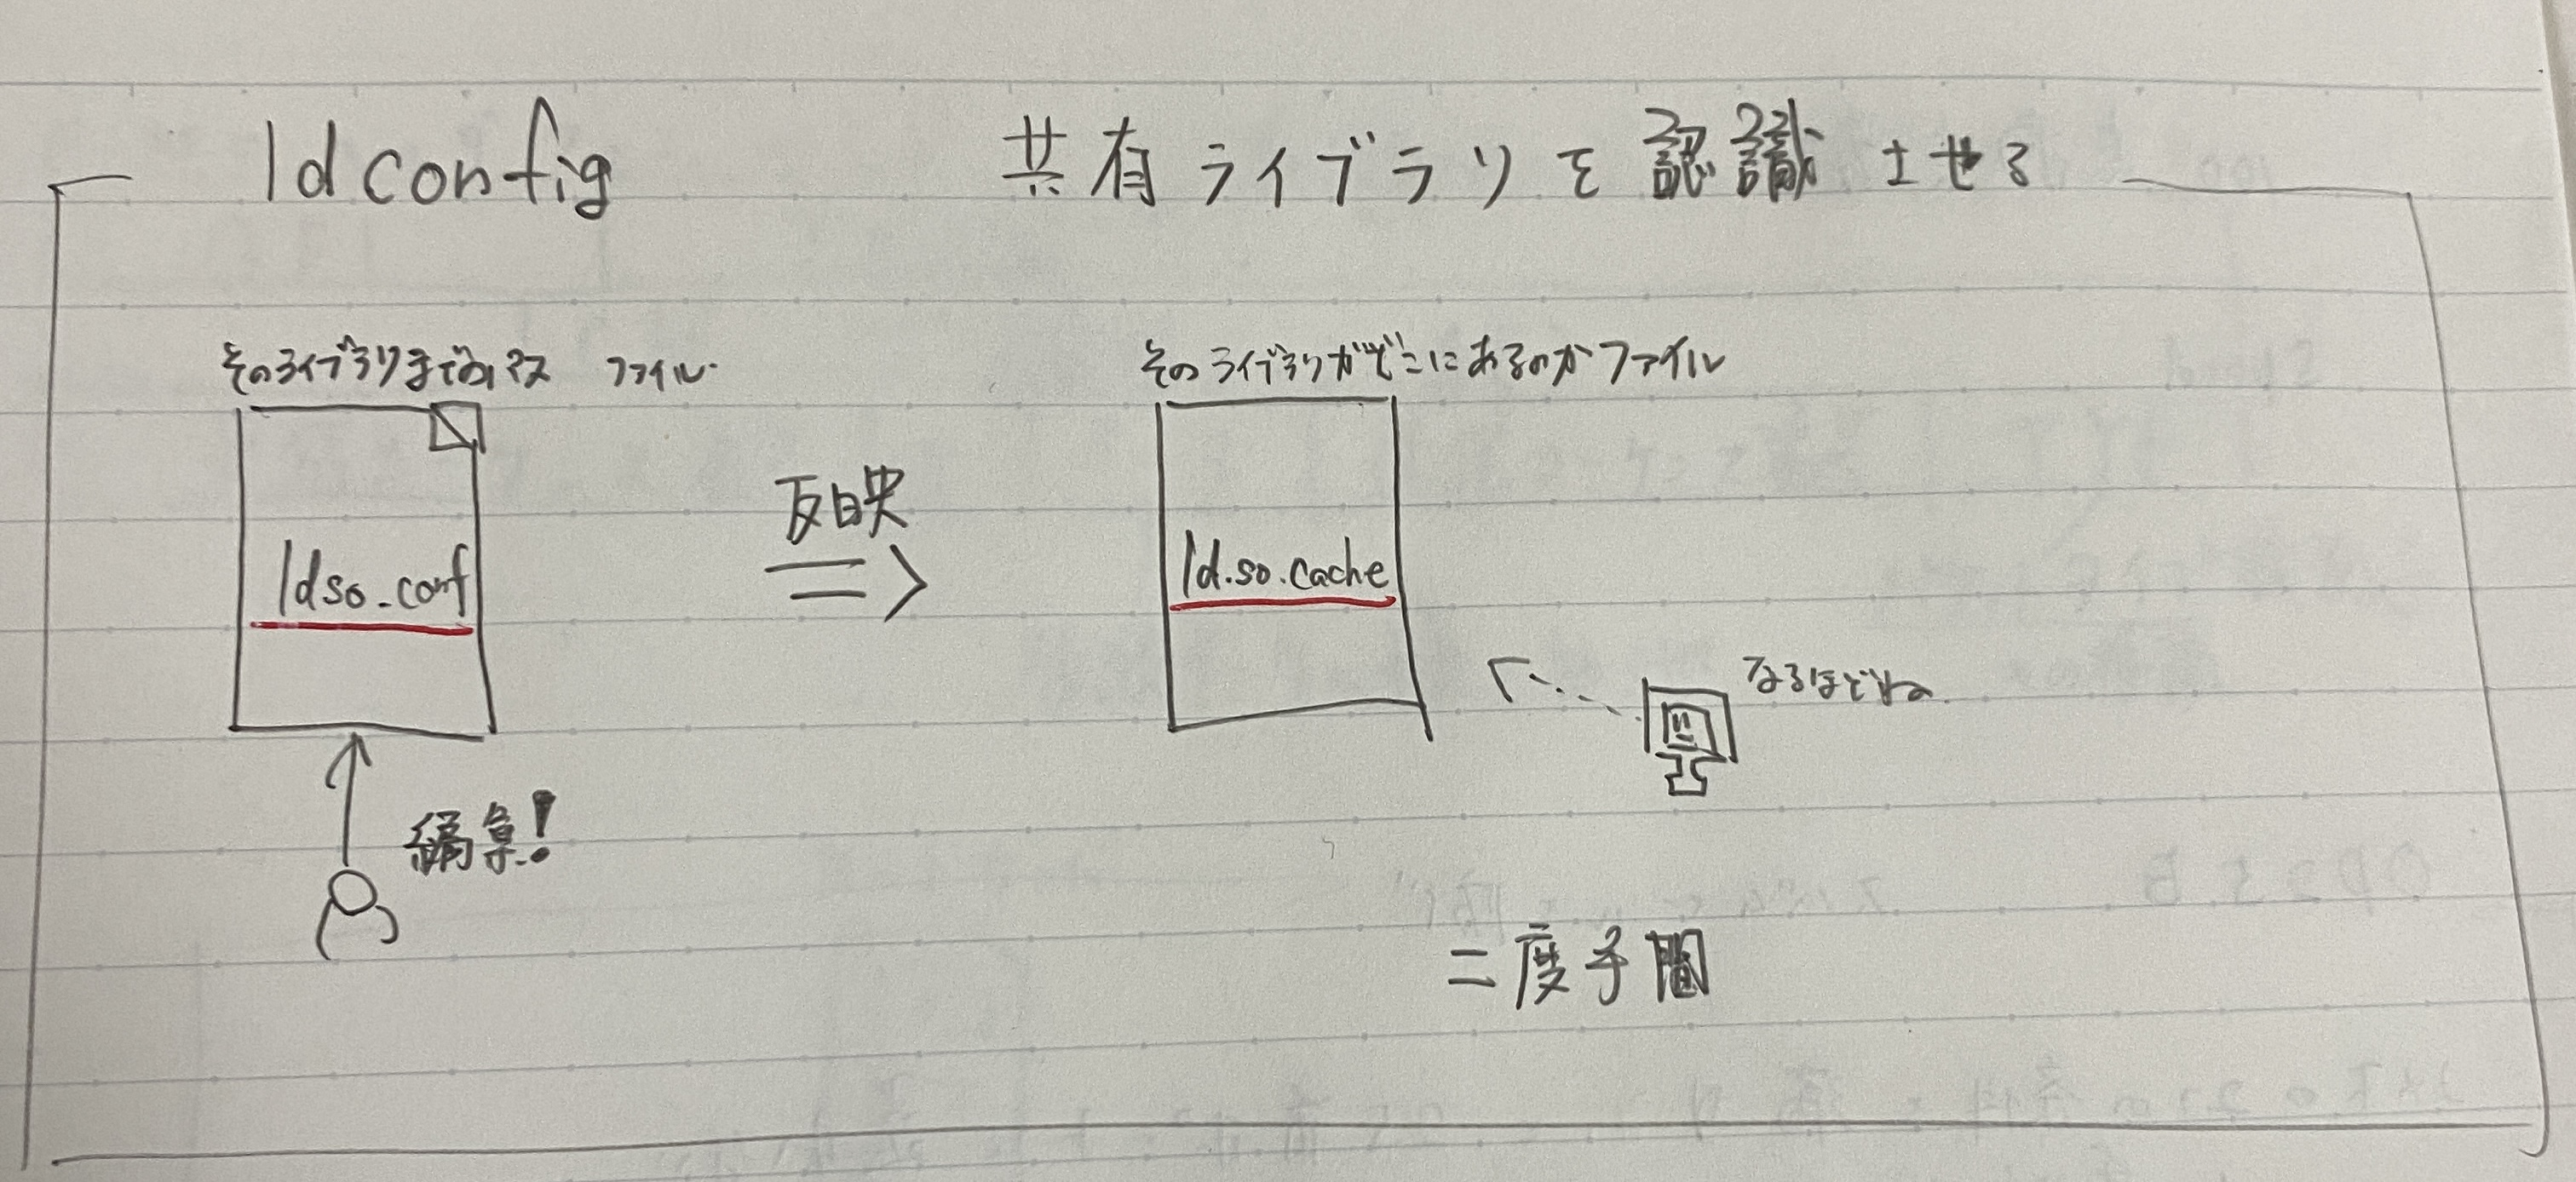 ldconfig 共有ライブラリを認識させる
そのライブラリまでのパス ファイル.
そのライブラリがどこにあるのかファイル
反映
ldso.conf
ld.so.cache
なるほどね
編集!
二度手間